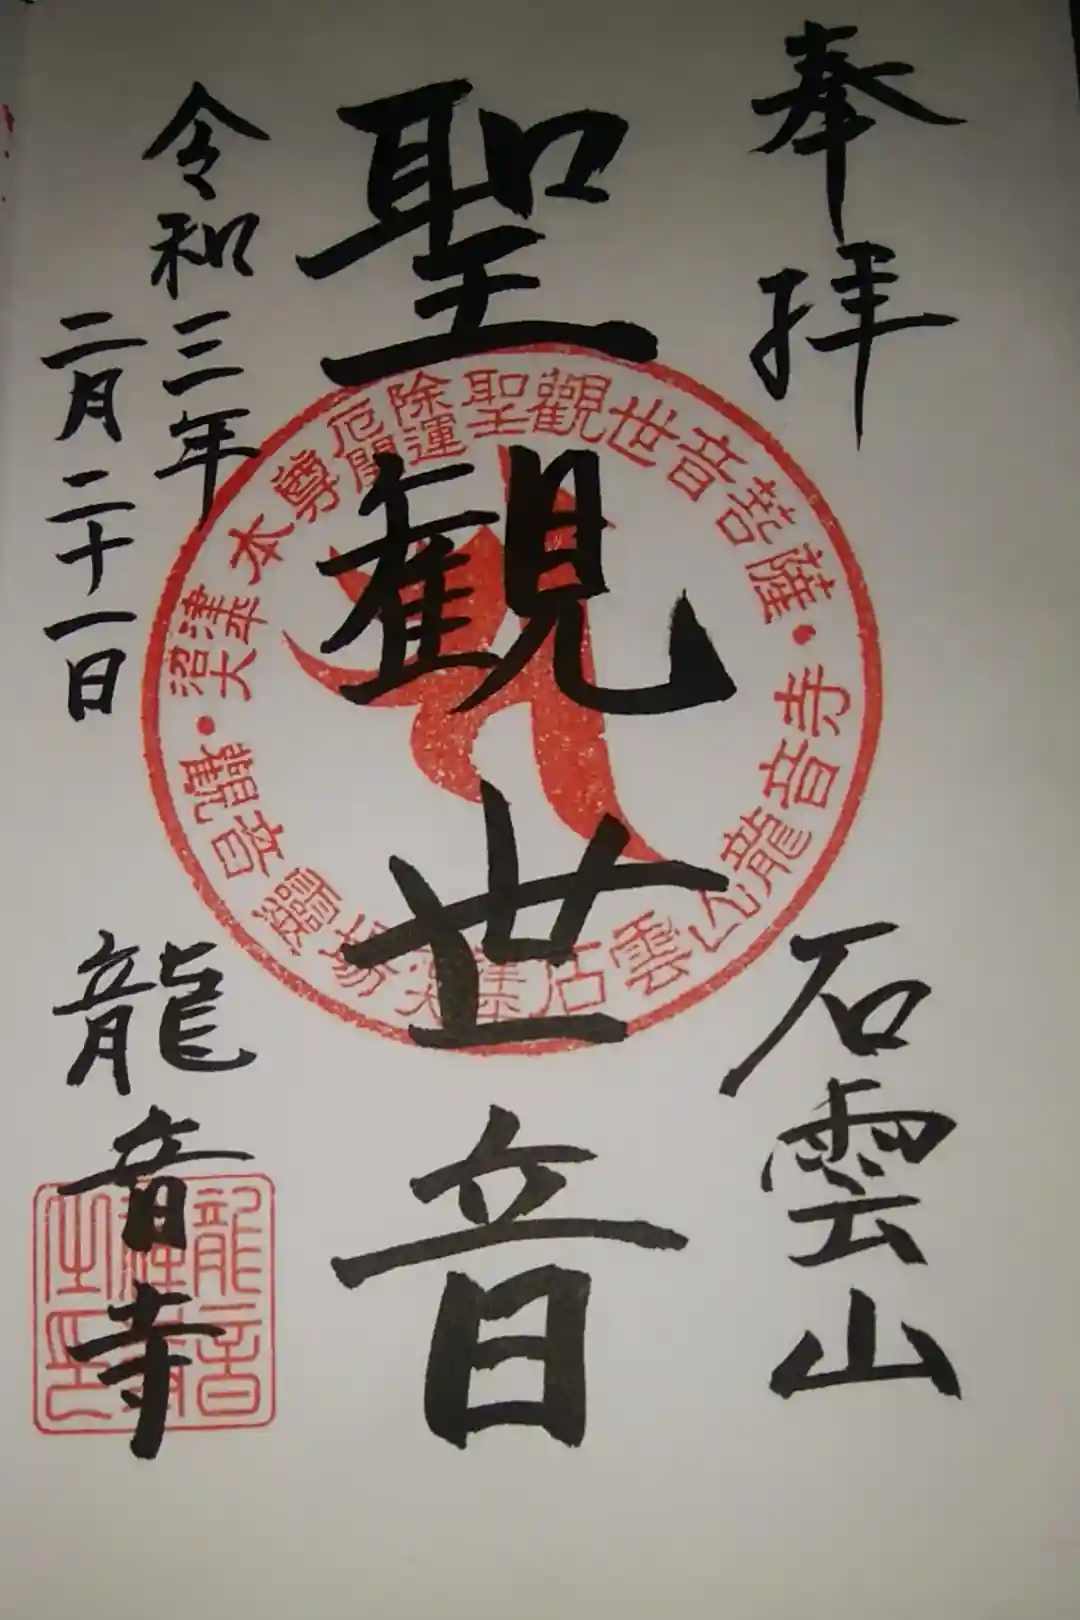 奉拝
石雲山
聖観世音
令和三年
二月二十一日
龍音寺
沼津 大平 本尊 厄除 開運 聖觀世音菩薩
石雲山龍音寺